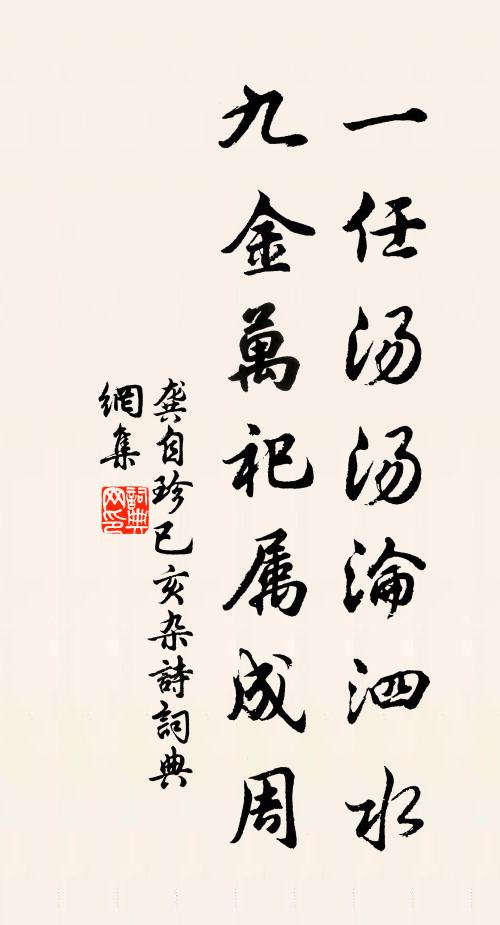 一任汤汤淪泗水
九金萬祀属成周
龚自珍己亥杂詩詞典
網集
詞典网印